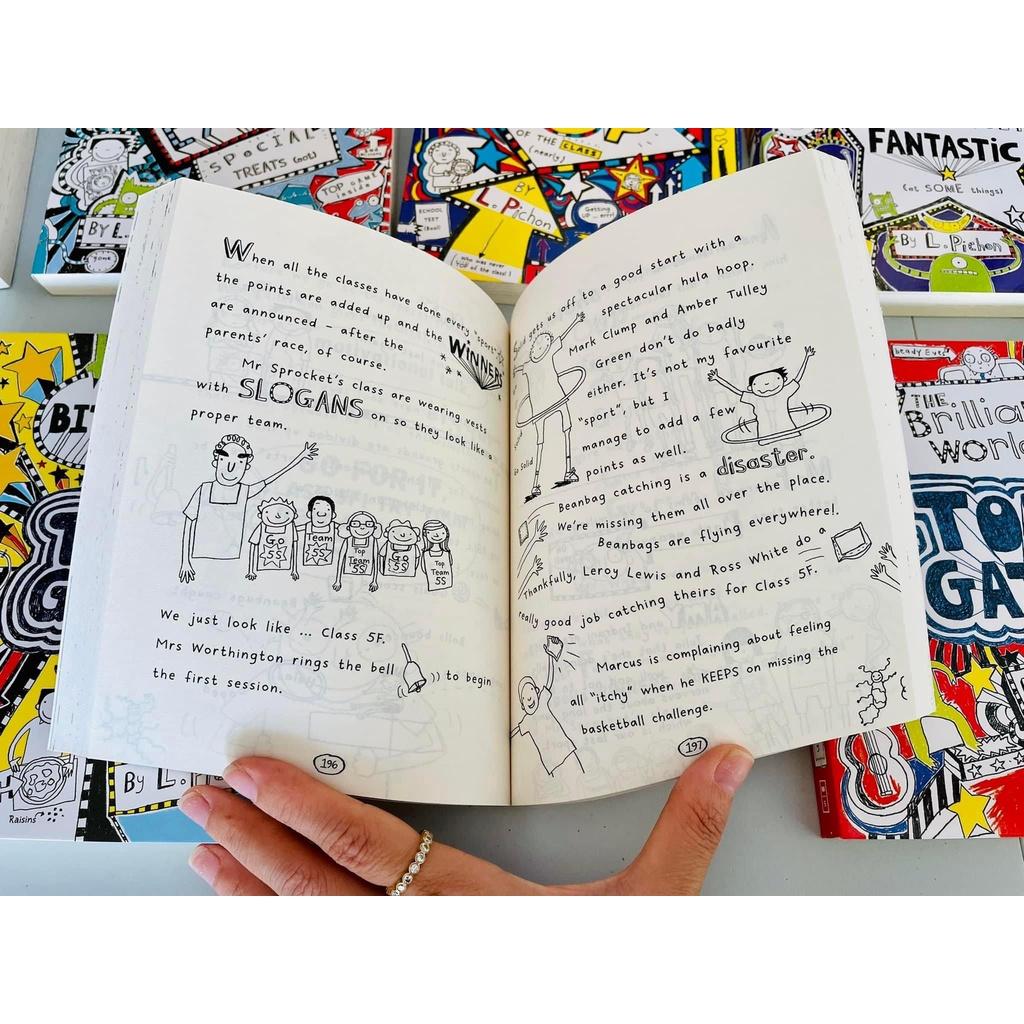 SPECIAL
TREATS (not)
TOP GAME
inside
BY L.
gone
OF THE CLASS
(nearly)
BY
L. Pichon
SCHOOL
TEST
(Bad)
Getting
UP ... err!
(who was never
TOP of the class)
FANTASTIC
(at SOME things)
By L. Pichon
When all the classes have done every "sport"
the points are added up and the WINNERS
are announced – after the
parents' race, of course.
Mr Sprocket's class are wearing vests
with SLOGANS on so they look like a
proper team.
Go
5S
Team
5S
Top
Team
5S
Go
5S
Top
Team
5S
We just look like ... Class 5F.
Mrs Worthington rings the bell
to begin
the first session.
196
gets us off to a good start with a
spectacular hula hoop.
Mark Clump and Amber Tulley
Green don't do badly
either. It's not my favourite
"sport", but I
manage to add a few
points as well.
Go Solid
Beanbag catching is a disaster.
We're missing them all over the place.
Beanbags are flying everywhere!
Thankfully, Leroy Lewis and Ross White do a
really good job catching theirs for Class 5F.
Marcus is complaining about feeling
all "itchy" when he KEEPS on missing the
basketball challenge.
197
Raisins
By L. Pi
THE
Brillia
World
TO
GA